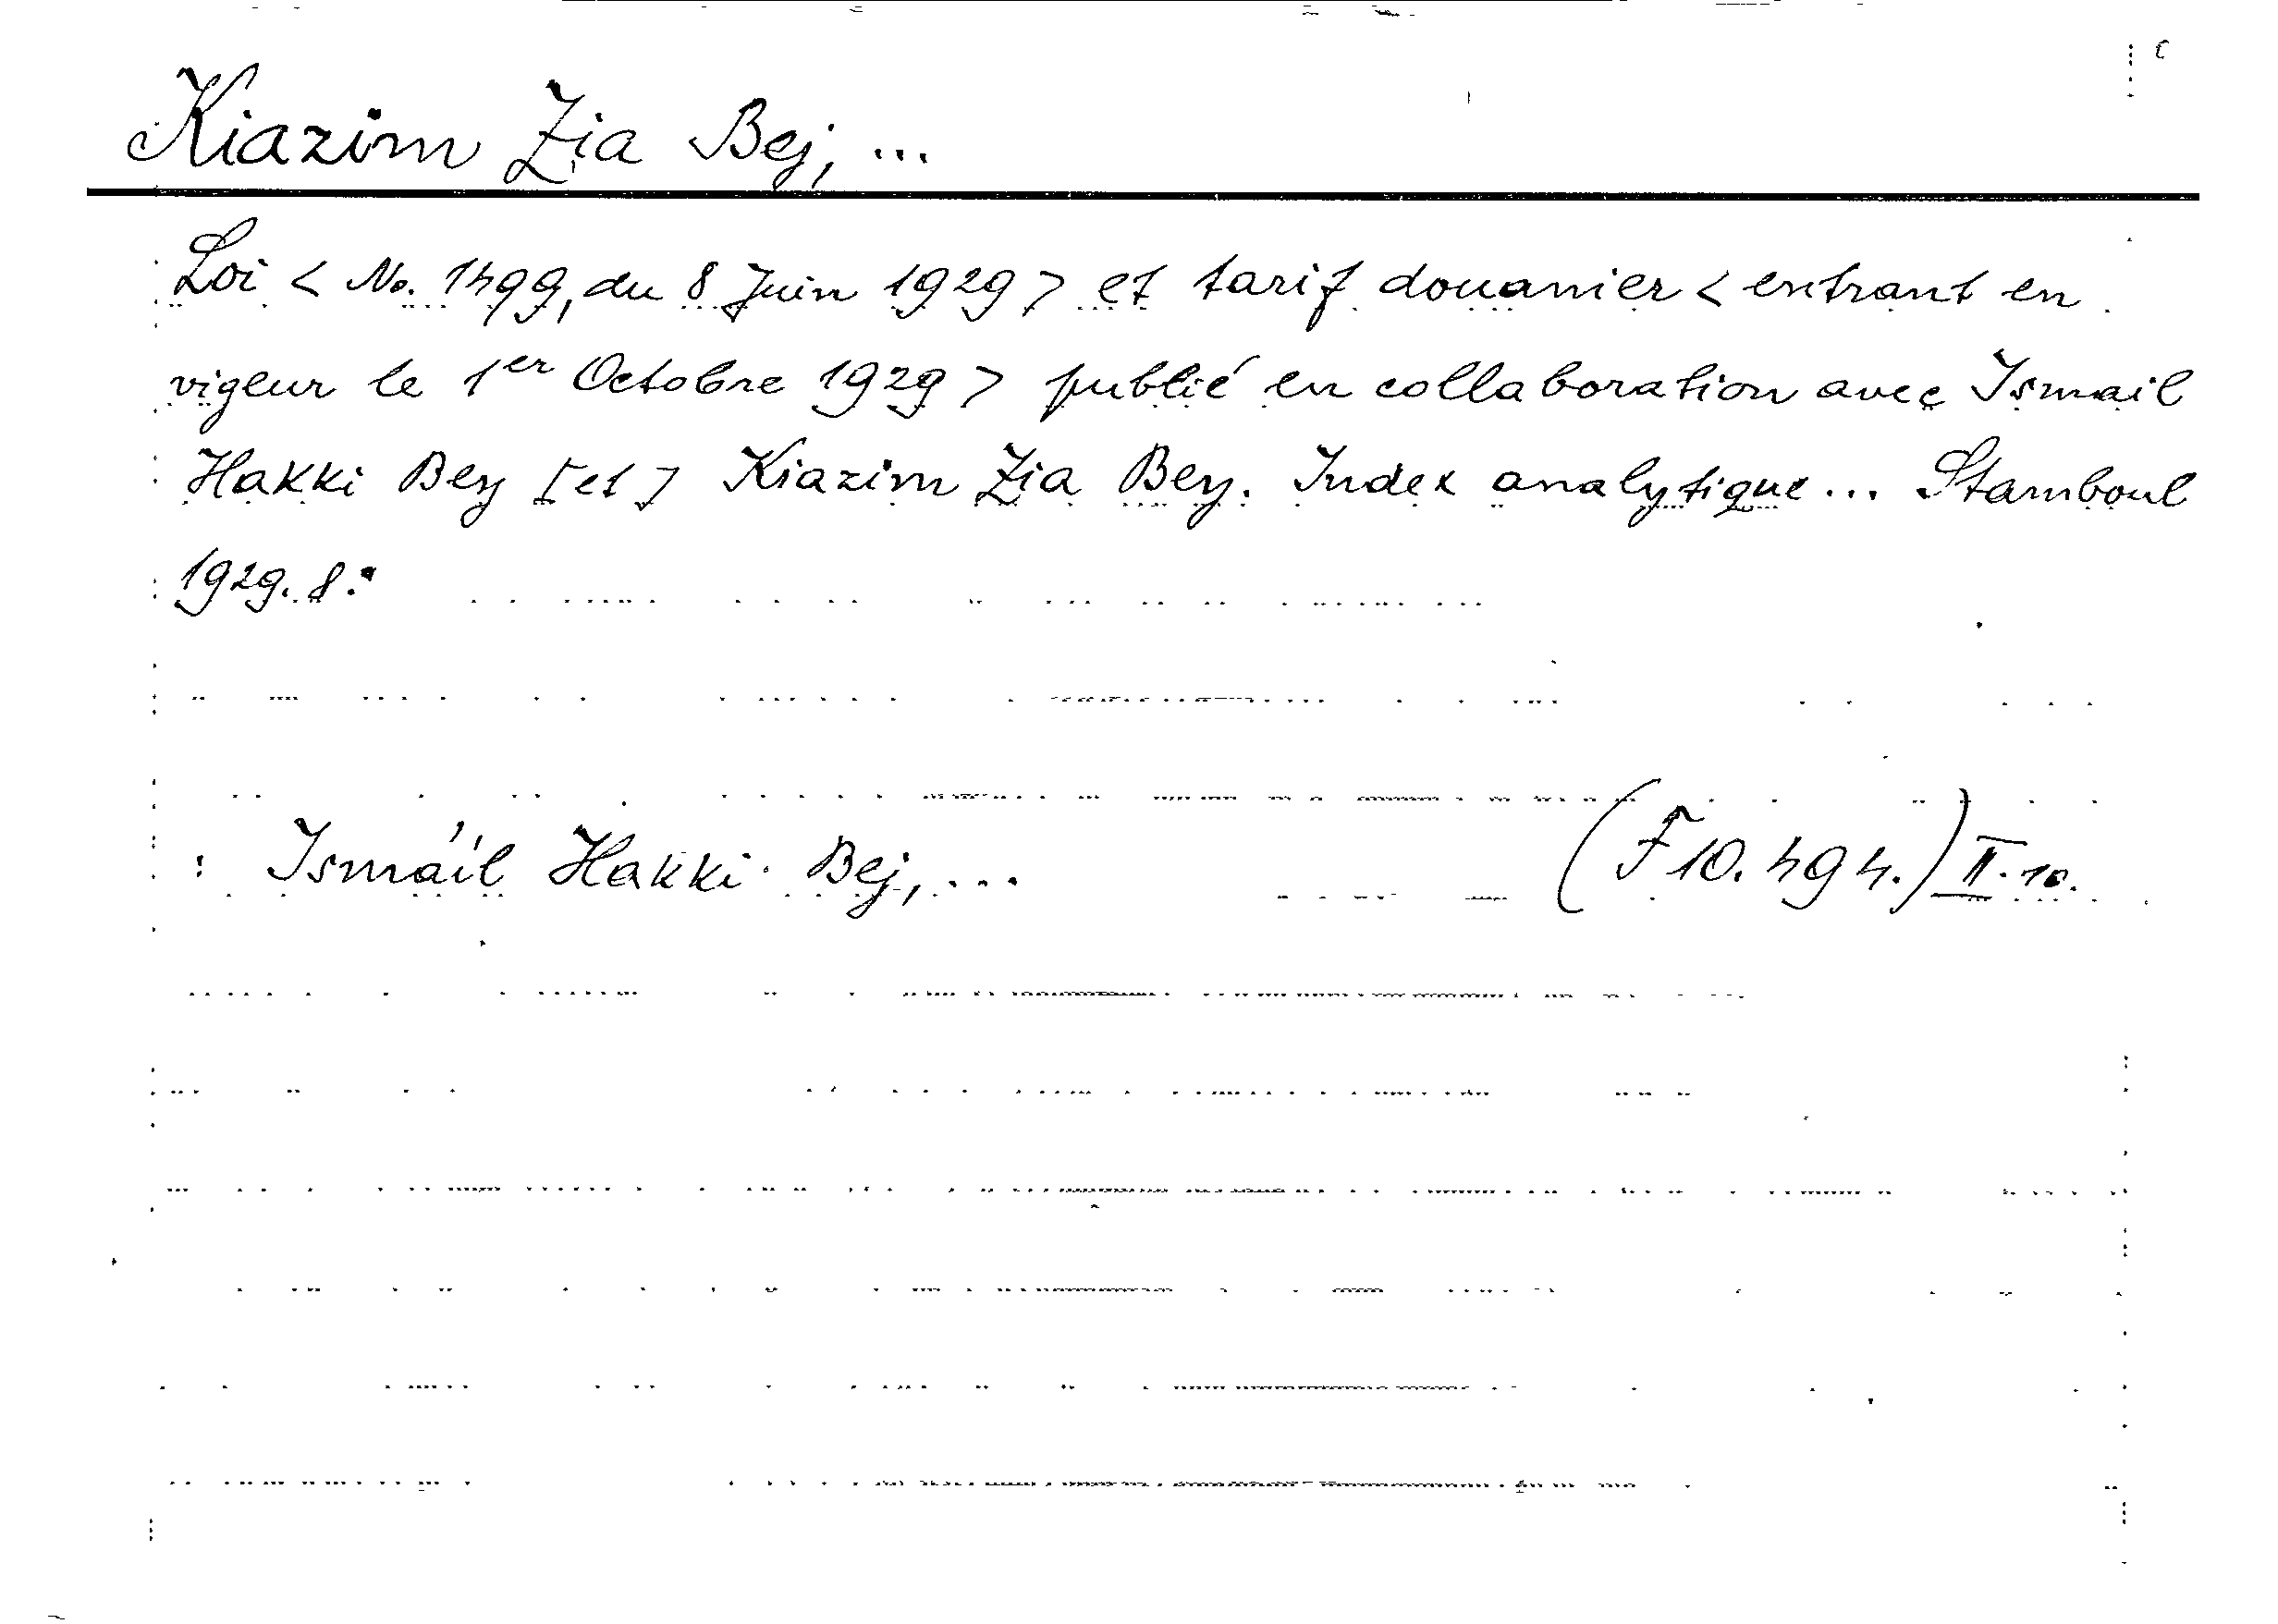 Kiazim Zia Bej, ...
Loi < No. 1499, du 8 Juin 1929 > et tarif douanier < entrant en
vigeur le 1er Octobre 1929 > publié en collaboration avec Ismail
Hakki Bey [et] Kiazim Zia Bey. Index analytique ... Stamboul
1929. 8°
: Ismáil Hakki Bej, ... (F 10. 494.) II. 10.